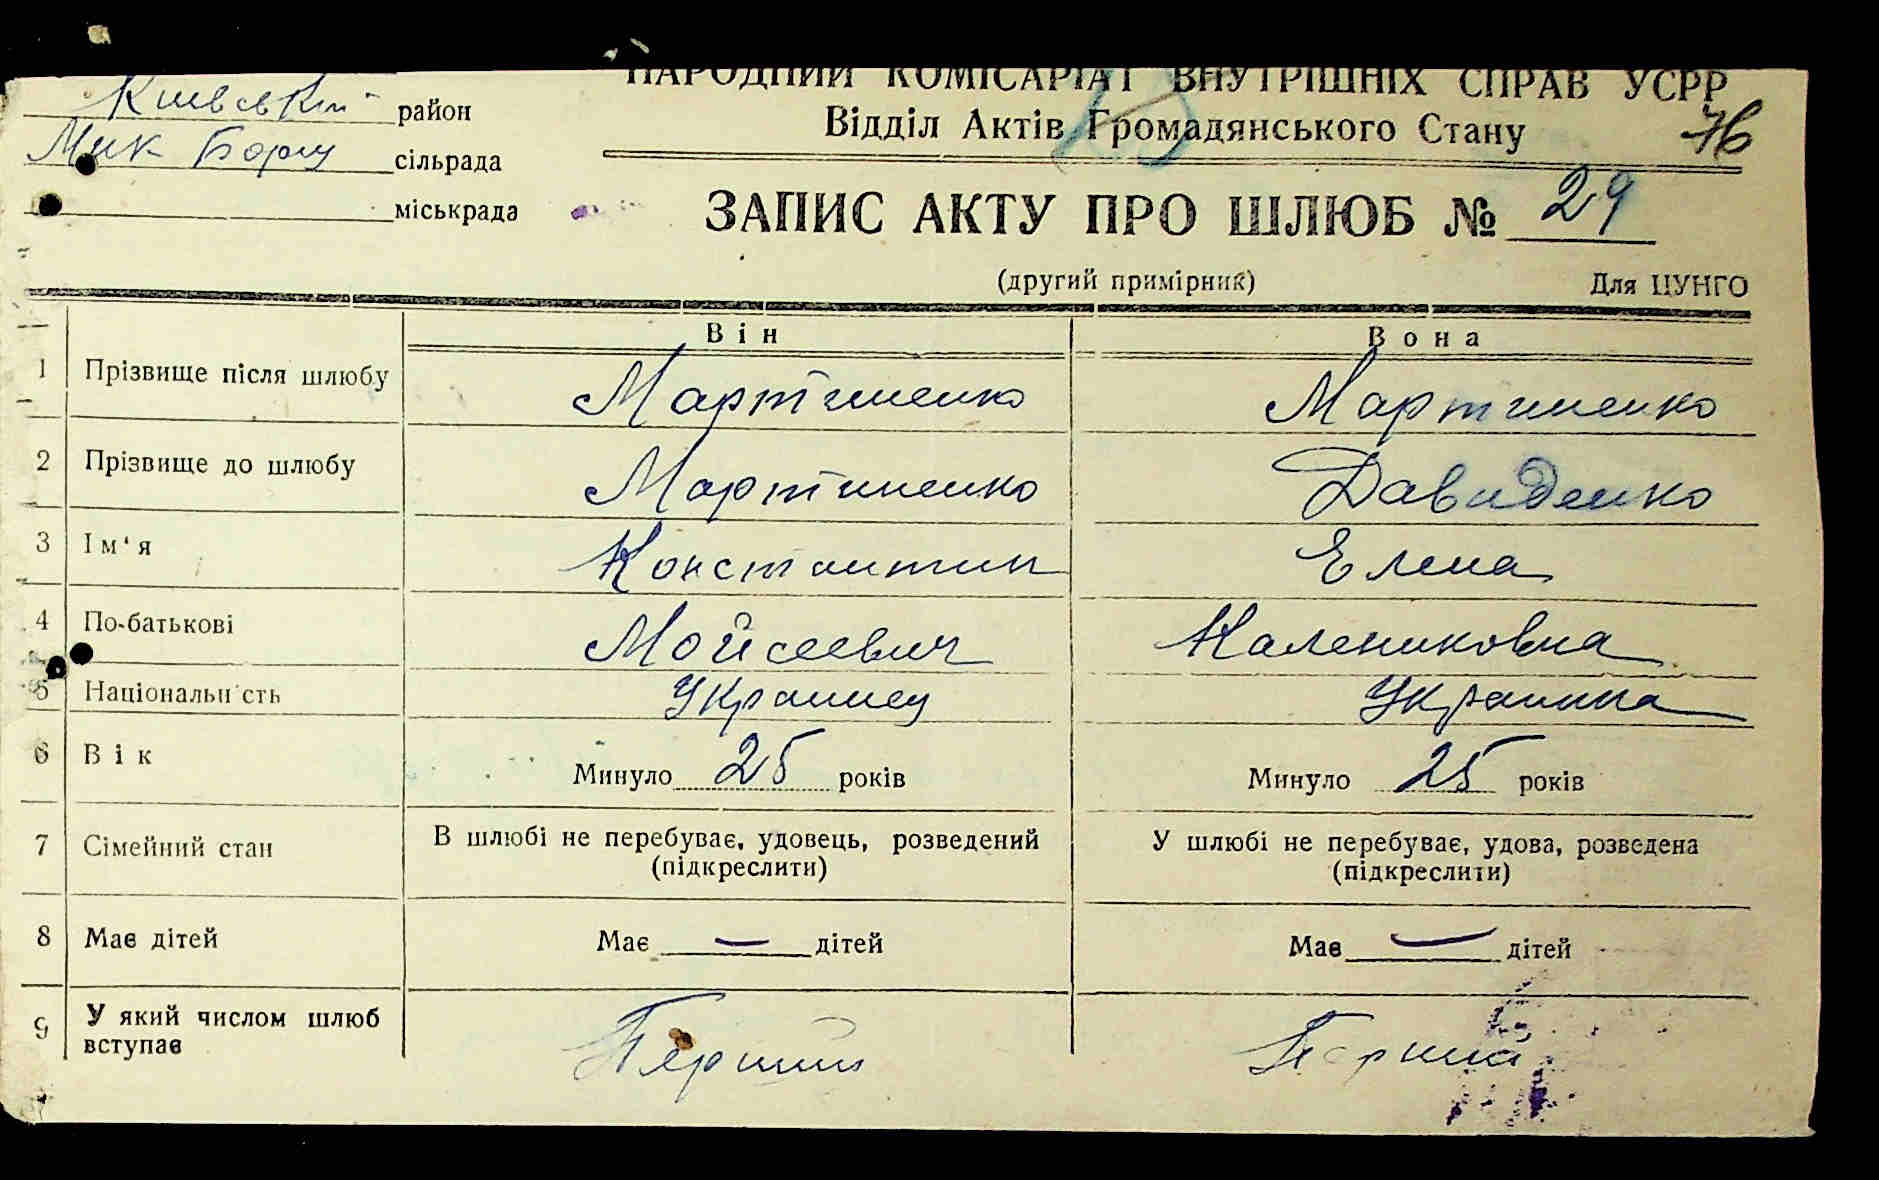 НАРОДНИЙ КОМІСАРІАТ ВНУТРІШНІХ СПРАВ УСРР
Київський район
Відділ Актів Громадянського Стану 76
Мик Борщ сільрада
міськрада
ЗАПИС АКТУ ПРО ШЛЮБ № 29
(другий примірник) Для ЦУНГО
Він Вона
1 Прізвище після шлюбу Мартиненко Мартиненко
2 Прізвище до шлюбу Мартиненко Давиденко
3 Ім'я Константин Елена
4 По-батькові Мойсеевич Калениковна
5 Національність Украинец Украинка
6 Вік Минуло 25 років Минуло 25 років
7 Сімейний стан В шлюбі не перебуває, удовець, розведений У шлюбі не перебуває, удова, розведена
(підкреслити) (підкреслити)
8 Має дітей Має — дітей Має — дітей
9 У який числом шлюб вступає Перший Перший